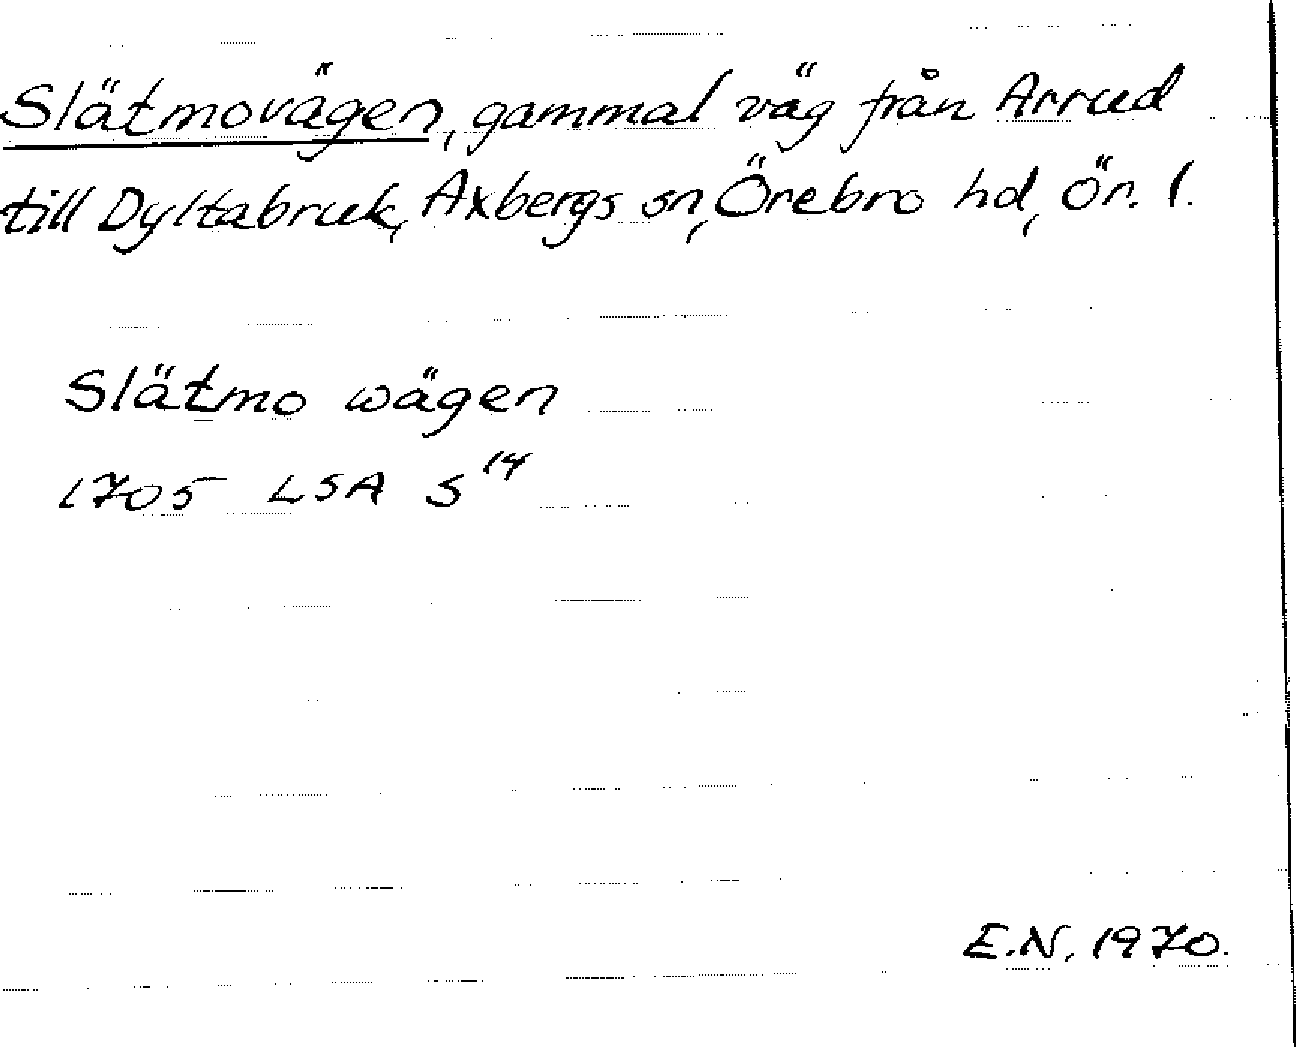 Slätmovägen, gammal väg från Arrud
till Dyltabruk, Axbergs sn, Örebro hd, Ör. l.
Slätmo wägen
1705 LSA S 14
E.N. 1970.